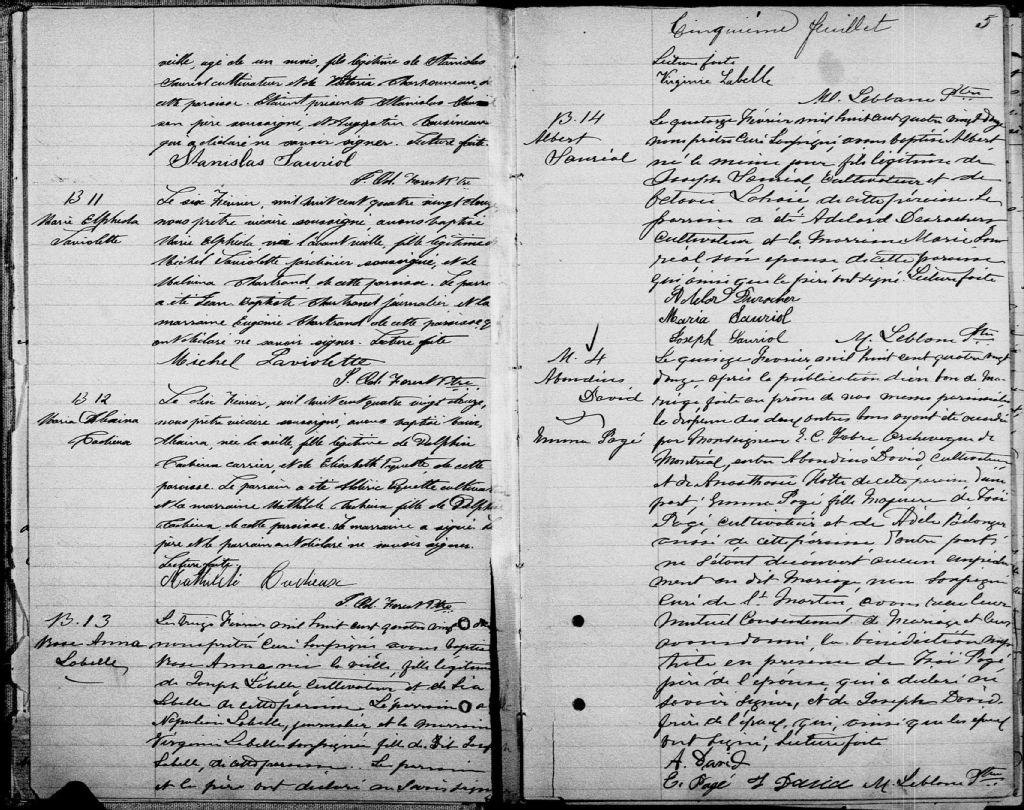 veille, agé de un mois, fils légitime de Stanislas
Sauriol cultivateur et de Victoria Charbonneau, de
cette paroisse. Étaient présents Stanislas Sauriol
son père soussigné, et
que a déclaré ne savoir signer. Lecture faite.
Stanislas Sauriol
J. Od. Forest Ptre
B 11
Marie Elpheda
Laviolette
Le six Février, mil huit cent quatre vingt douze
nous prêtre vicaire soussigné, avons baptisé
Marie Elpheda née l'avant veille, fille légitime de
Michel Laviolette jardinier soussigné, et de
Malvina Chartrand de cette paroisse. Le parrain
a été Jean Baptiste Chartrand journalier et la
marraine Eugénie Chartrand de cette paroisse q
ont déclaré ne savoir signer. Lecture faite
Michel Laviolette
J. Od. Forest Ptre
B 12
Maria
Le six Février, mil huit cent quatre vingt douze,
nous prêtre vicaire soussigné, avons baptisé Maria
née la veille fille légitime de Delphin
carrier, et de Elisabeth Paquette, de cette
paroisse. Le parrain a été Paquette cultivateur
et la marraine Mathilde fille de Delphin
de cette paroisse. La marraine a signé le
père et le parrain ont déclaré ne savoir signer.
Lecture faite.
J. Od. Forest Ptre
B. 13
Rose Anna
Labelle
Le treize Février mil huit cent quatre vingt douze
nous prêtre Curé soussigné avons baptisé
Rose Anna née la veille, fille légitime
de Joseph Labelle, Cultivateur et de
Labelle de cette paroisse. Le parrain a
Napoléon Labelle, journalier et la marraine
Virginie Labelle soussignée fille de dit Joseph
Labelle, de cette paroisse. Le parrain
et le père ont déclaré ne savoir signer
Cinquième feuillet
5
Lecture faite
Virginie Labelle
M. Leblanc Ptre
B. 14
Albert
Sauriol
Le quatorze Février mil huit cent quatre vingt douze
nous prêtre Curé soussigné avons baptisé Albert
né le même jour fils légitime de
Joseph Sauriol, Cultivateur et de
de cette paroisse. Le
parrain a été Adelard Desrochers
Cultivateur et la Marraine Marie Sau-
riol son épouse de cette paroisse
qui ainsi que le père ont signé. Lecture faite
Maria Sauriol
Joseph Sauriol M. Leblanc Ptre
M. 4
Abondius
David
&
Emma Pagé
Le quinze Février mil huit cent quatre vingt
douze, après la publication d'un ban de Ma-
riage faite au prône de nos messes paroissiales
la dispense des deux autres bans ayant été accordée
par Monseigneur E. C. Fabre Archevêque de
Montréal, entre Abondius David, Cultivateur
et de Anasthasie Hotte de cette paroisse d'une
part; Emma Pagé fille Mineure de Isaï
Pagé Cultivateur et de Adèle Bélanger
aussi de cette paroisse d'autre part:
ne s'étant découvert aucun empêche-
ment au dit Mariage, nous soussigné
Curé de St Martin, avons reçu leur
Mutuel Consentement de Mariage et leur
avons donné, la bénédiction nup-
tiale en présence de Isaï Pagé
père de l'épouse qui a déclaré ne
savoir signer, et de Joseph David
frère de l'époux, qui, ainsi que les époux
ont signé, Lecture faite
A. David
E. Pagé J David M. Leblanc Ptre